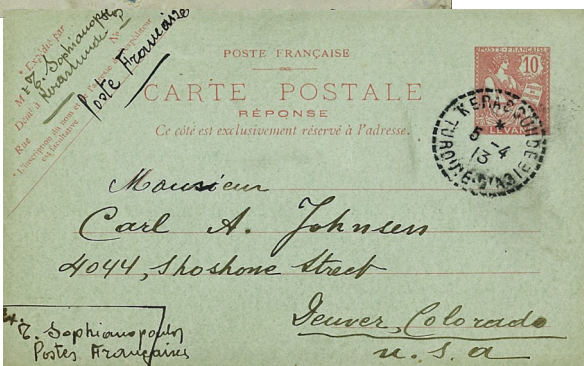 * Expédié par
M r G. Sophianopoulos
Demt à Kerassunde
Rue No
* L'inscription du nom et de l'adresse de l'expéditeur
est facultative
Poste Française
POSTE FRANÇAISE
CARTE POSTALE
RÉPONSE
Ce côté est exclusivement réservé à l'adresse.
POSTE FRANÇAISE
10
LEVANT
KERASSUNDE
5 -4
13
TURQUIE D'ASIE
Monsieur
Carl A. Johnsen
4044, Shoshone Street
Denver, Colorado
U.S.A
Sophianopoulos
Postes Françaises